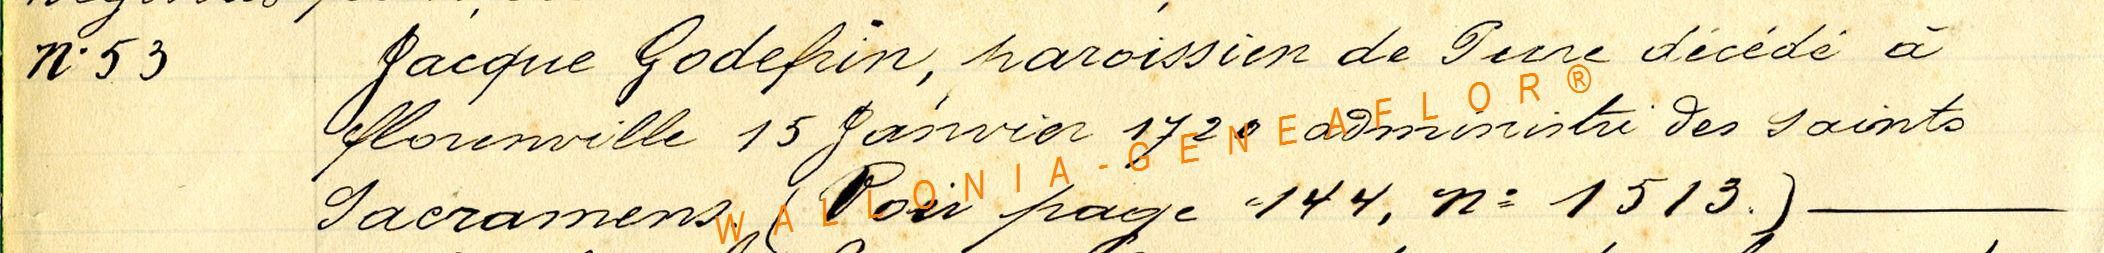 n° 53 Jacque Godefrin, paroissien de décédé à
florenville 15 Janvier 1720 administré des saints
Sacramens. (Voir page 144, n° 1513.)
WALLONIA-GENEAFLOR®